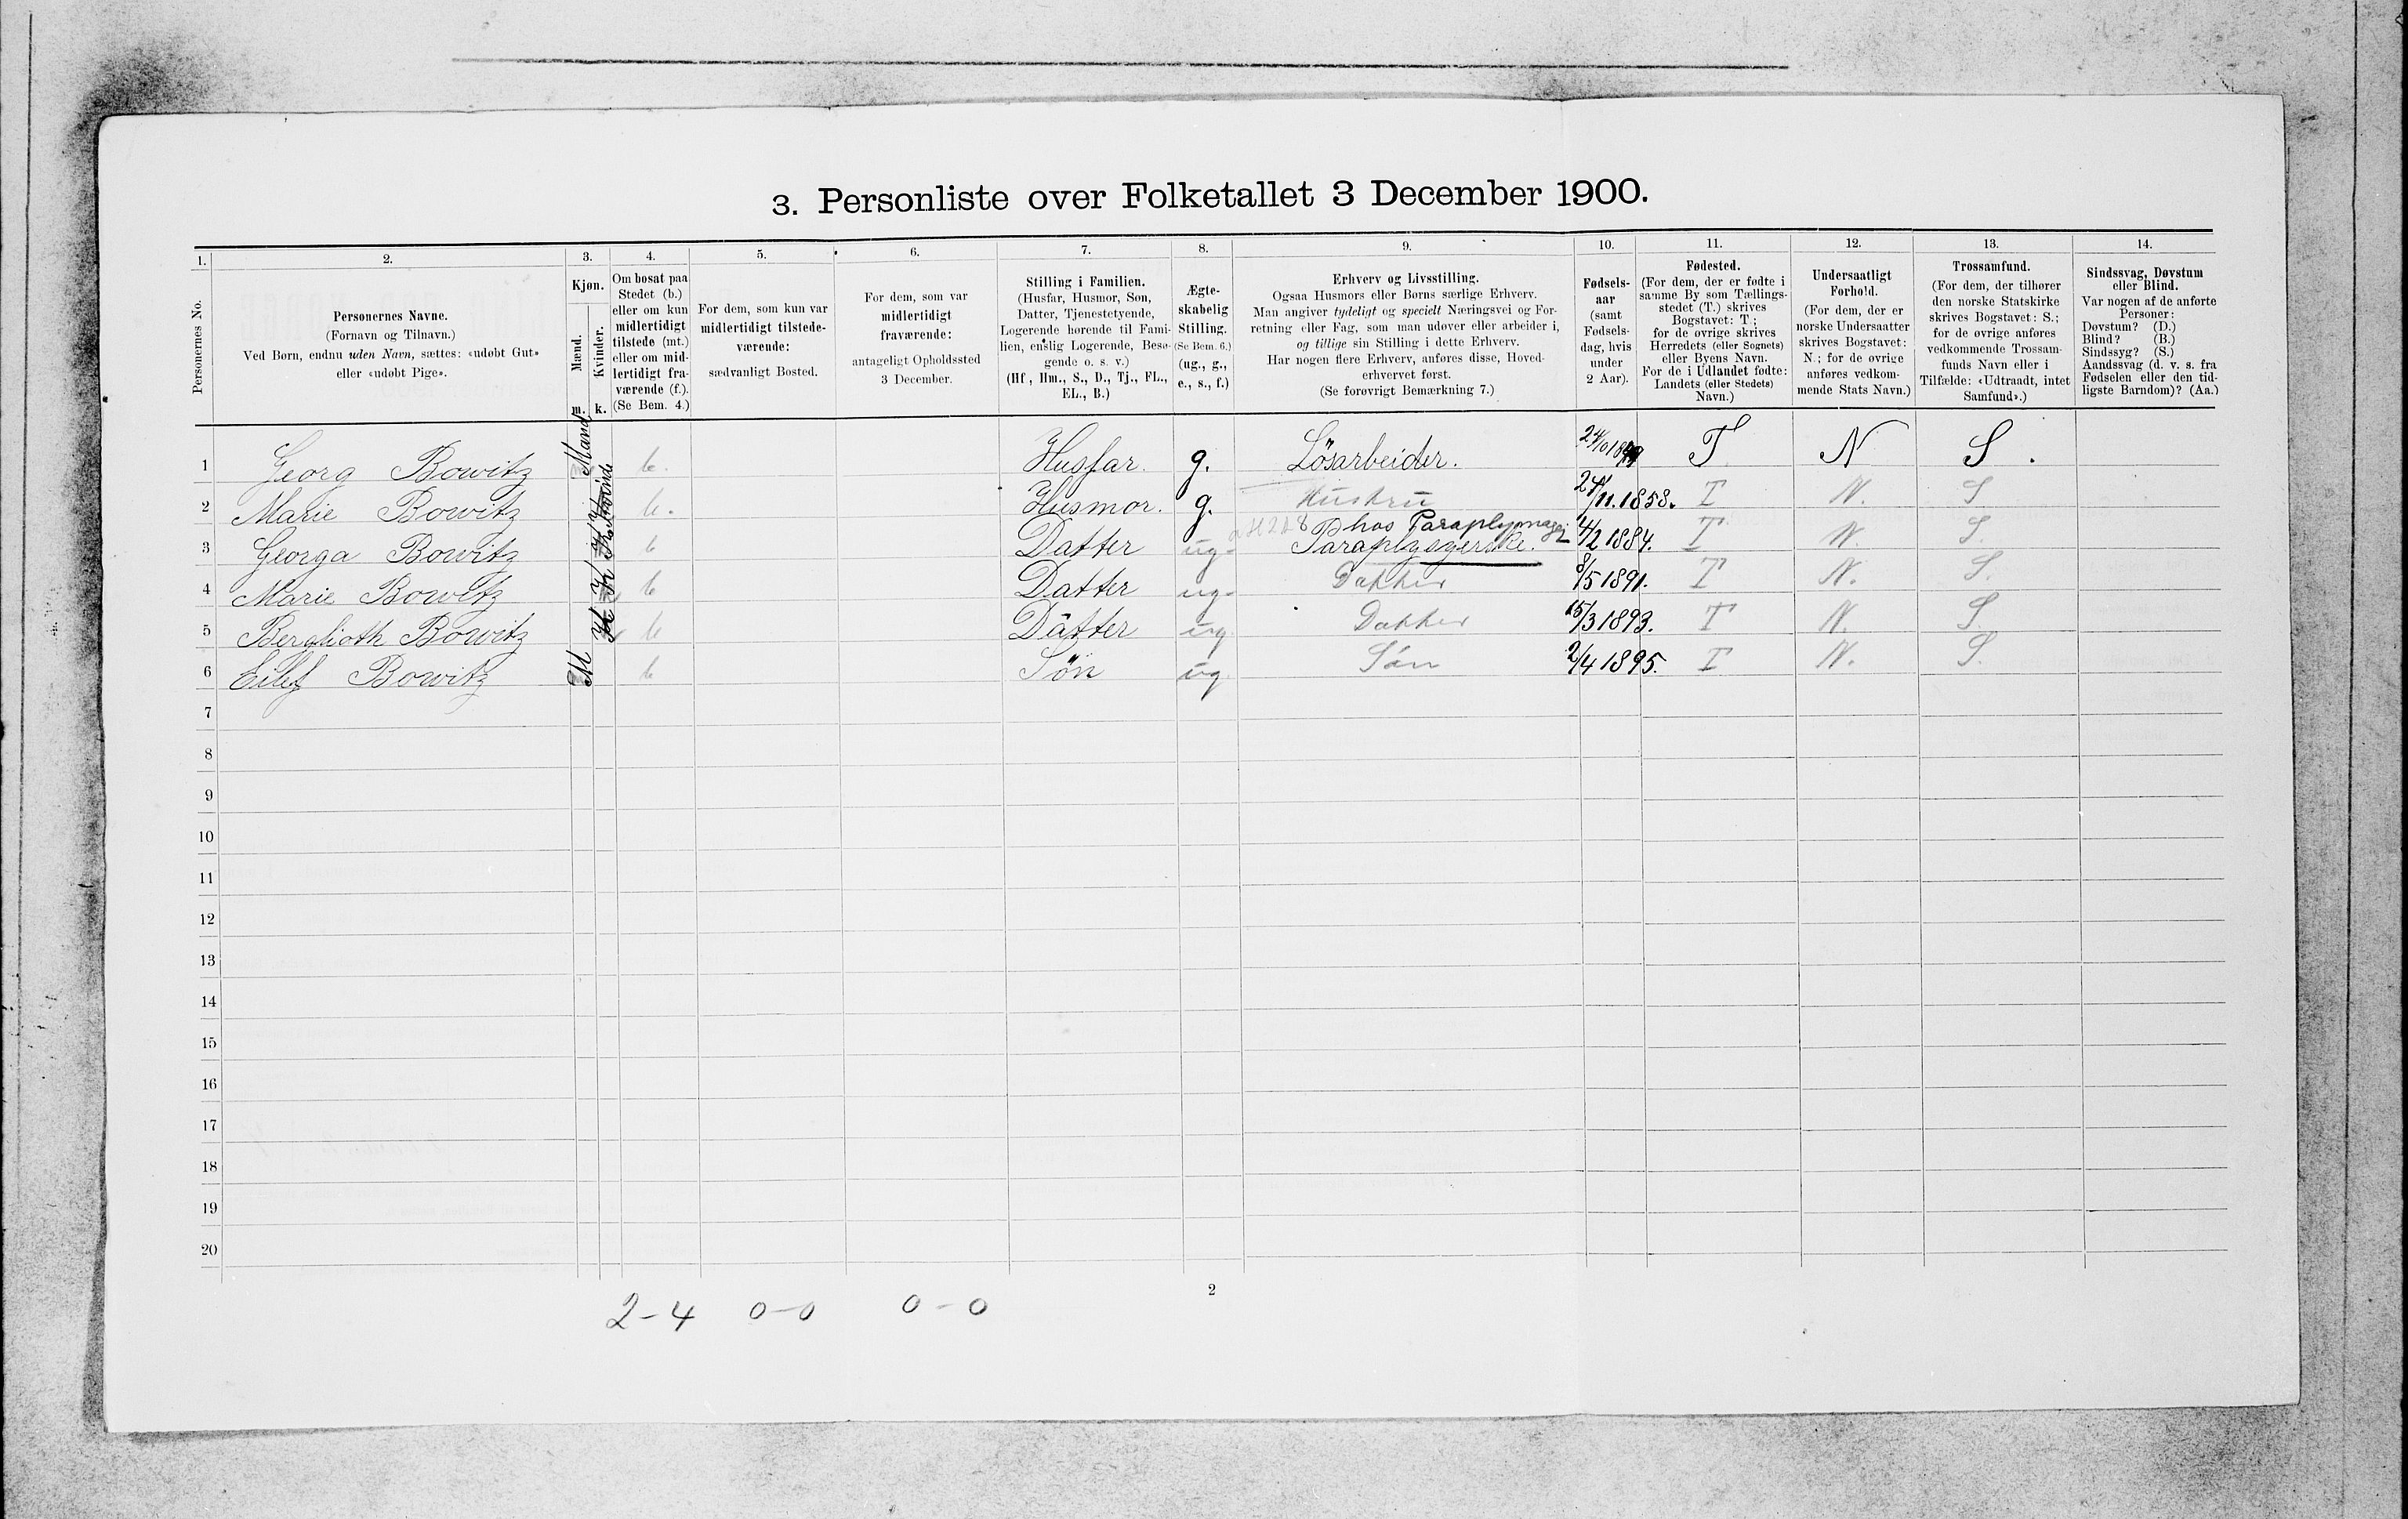 3. Personliste over Folketallet 3 December 1900.
1. 2. 3. 4. 5. 6. 7. 8. 9. 10. 11. 12. 13. 14.
Personernes No.
Personernes Navne.
(Fornavn og Tilnavn.)
Ved Børn, endnu uden Navn, sættes: «udøbt Gut»
eller «udøbt Pige».
Kjøn.
Mænd.
Kvinder.
m. k.
Om bosat paa
Stedet (b.)
eller om kun
midlertidigt
tilstede (mt.)
eller om mid-
lertidigt fra-
værende (f.).
(Se Bem. 4.)
For dem, som kun var
midlertidigt tilstede-
værende:
sædvanligt Bosted.
For dem, som var
midlertidigt
fraværende:
antageligt Opholdssted
3 December.
Stilling i Familien.
(Husfar, Husmor, Søn,
Datter, Tjenestetyende,
Logerende hørende til Fami-
lien, enslig Logerende, Besø-
gende o. s. v.)
(Hf, Hm., S., D., Tj., FL.,
EL., B.)
Ægte-
skabelig
Stilling.
(Se Bem. 6.)
(ug., g.,
e., s., f.)
Erhverv og Livsstilling.
Ogsaa Husmors eller Børns særlige Erhverv.
Man angiver tydeligt og specielt Næringsvei og For-
retning eller Fag, som man udøver eller arbeider i,
og tillige sin Stilling i dette Erhverv.
Har nogen flere Erhverv, anføres disse, Hoved-
erhvervet først.
(Se forøvrigt Bemærkning 7.)
Fødsels-
aar
(samt
Fødsels-
dag, hvis
under
2 Aar).
Fødested.
(For dem, der er fødte i
samme By som Tællings-
stedet (T.) skrives
Bogstavet: T;
for de øvrige skrives
Herredets (eller Sognets)
eller Byens Navn.
For de i Udlandet fødte:
Landets (eller Stedets)
Navn.)
Undersaatligt
Forhold.
(For dem, der er
norske Undersaatter
skrives Bogstavet:
N.; for de øvrige
anføres vedkom-
mende Stats Navn.)
Trossamfund.
(For dem, der tilhører
den norske Statskirke
skrives Bogstavet: S.;
for de øvrige anføres
vedkommende Trossam-
funds Navn eller i
Tilfælde: «Udtraadt, intet
Samfund».)
Sindssvag, Døvstum
eller Blind.
Var nogen af de anførte
Personer:
Døvstum? (D.)
Blind? (B.)
Sindssyg? (S.)
Aandssvag (d. v. s. fra
Fødselen eller den tid-
ligste Barndom)? (Aa.)
1 Georg Bowitz Mand b. Husfar. g. Løsarbeider. T N S.
2 Marie Bowitz b. Husmor. g. Hustru 24/11.1858. T N. S
hos Paraplymager
3 Georga Bowitz K b Datter ug. Paraplysyerske. 4/2 1884. T N. S.
4 Marie Bowitz K b Datter ug. Datter 8/5 1891. T N. S.
5 Berglioth Bowitz K b Datter ug Datter 15/3 1893. T N. S.
6 Eilef Bowitz M b Søn ug Søn 2/4 1895. T N. S.
7
8
9
10
11
12
13
14
15
16
17
18
19
20
2
2-4 0-0 0-0